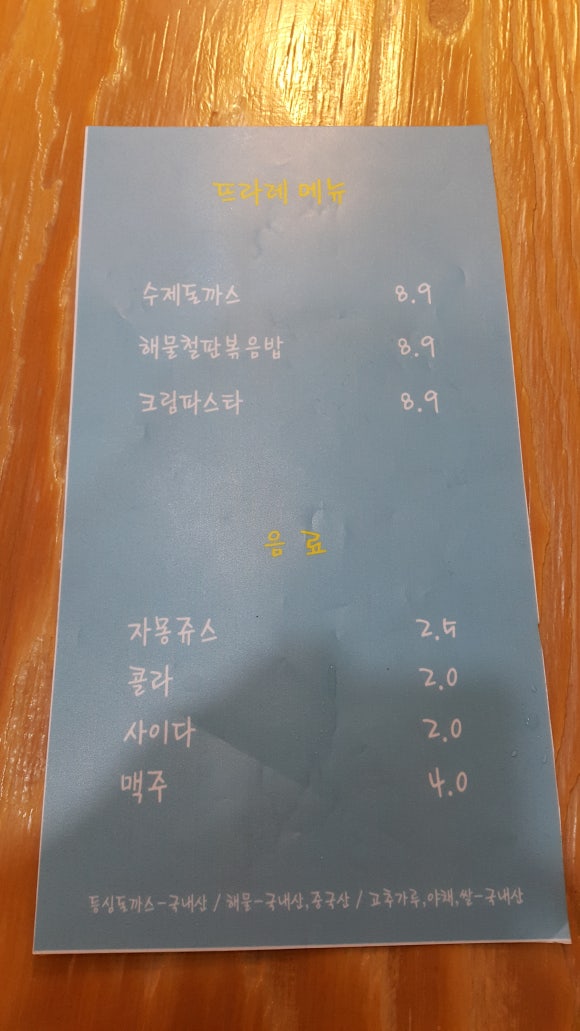 뜨라레 메뉴
수제돈까스 8.9
해물철판볶음밥 8.9
크림파스타 8.9
음료
자몽쥬스 2.5
콜라 2.0
사이다 2.0
맥주 4.0
등심돈까스-국내산 / 해물-국내산,중국산 / 고추가루,야채,쌀-국내산